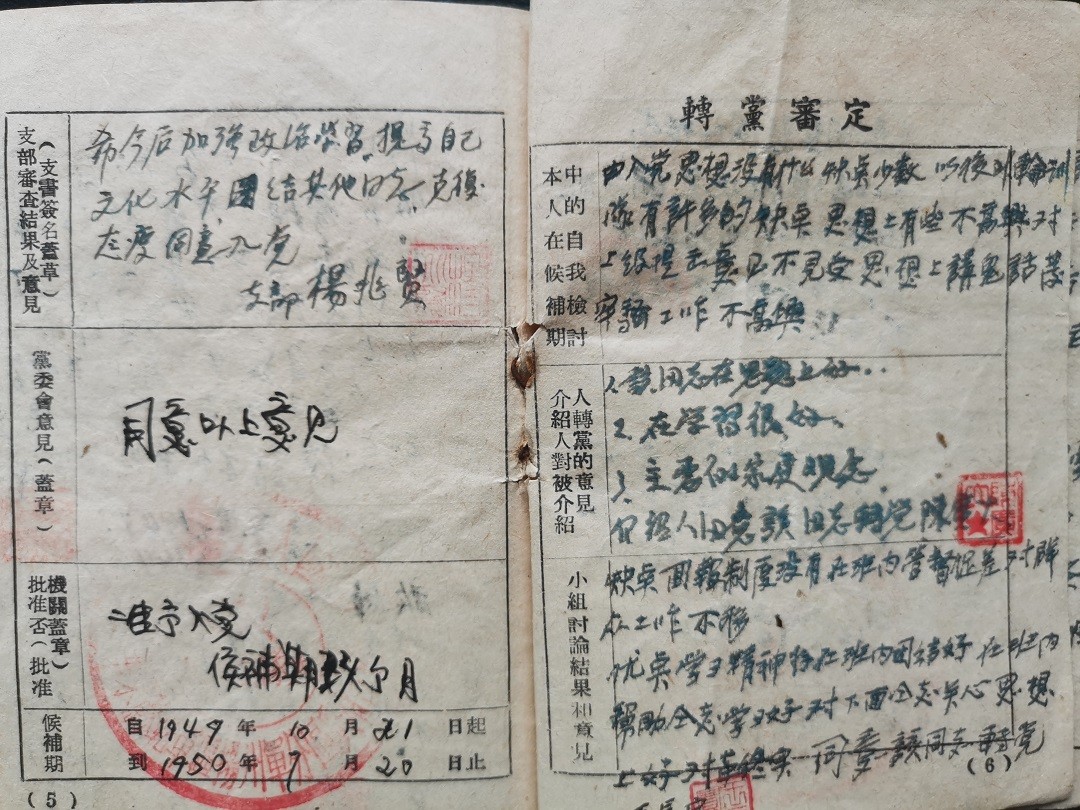 支部審查結果及意見
（支書簽名蓋草）
希今后加強政治学習，提高自己
文化水平團结其他同志，克復
态度同意入党
支部 楊兆賢
黨委會意見（蓋章）
同意以上意見
批准否（批准
機關蓋章）
准予入党
侯補期 月
候補期
自1949年10月21日起
到1950年7月20日止
(5)
轉黨審定
本人在候補期
中的自我檢討
入党思想没有什么缺点少数 以後
隊有許多的缺点思想上有些不高興对
上级提去意見不見受思想上講鬼話
工作不高興
介紹人對被介紹
人轉黨的意見
1. 同志在思想上好..
2. 在学習很好、
3. 主要 家庭观念
介绍人同意該同志轉党 陳
小組討論結果和意見
缺点回報制度没有在班内督促差对群
众工作不够
优点学习精神 在班内团结好 在班内
幫助仝志学习好对下面仝志关心 思想
上好 同意該同志轉党
(6)